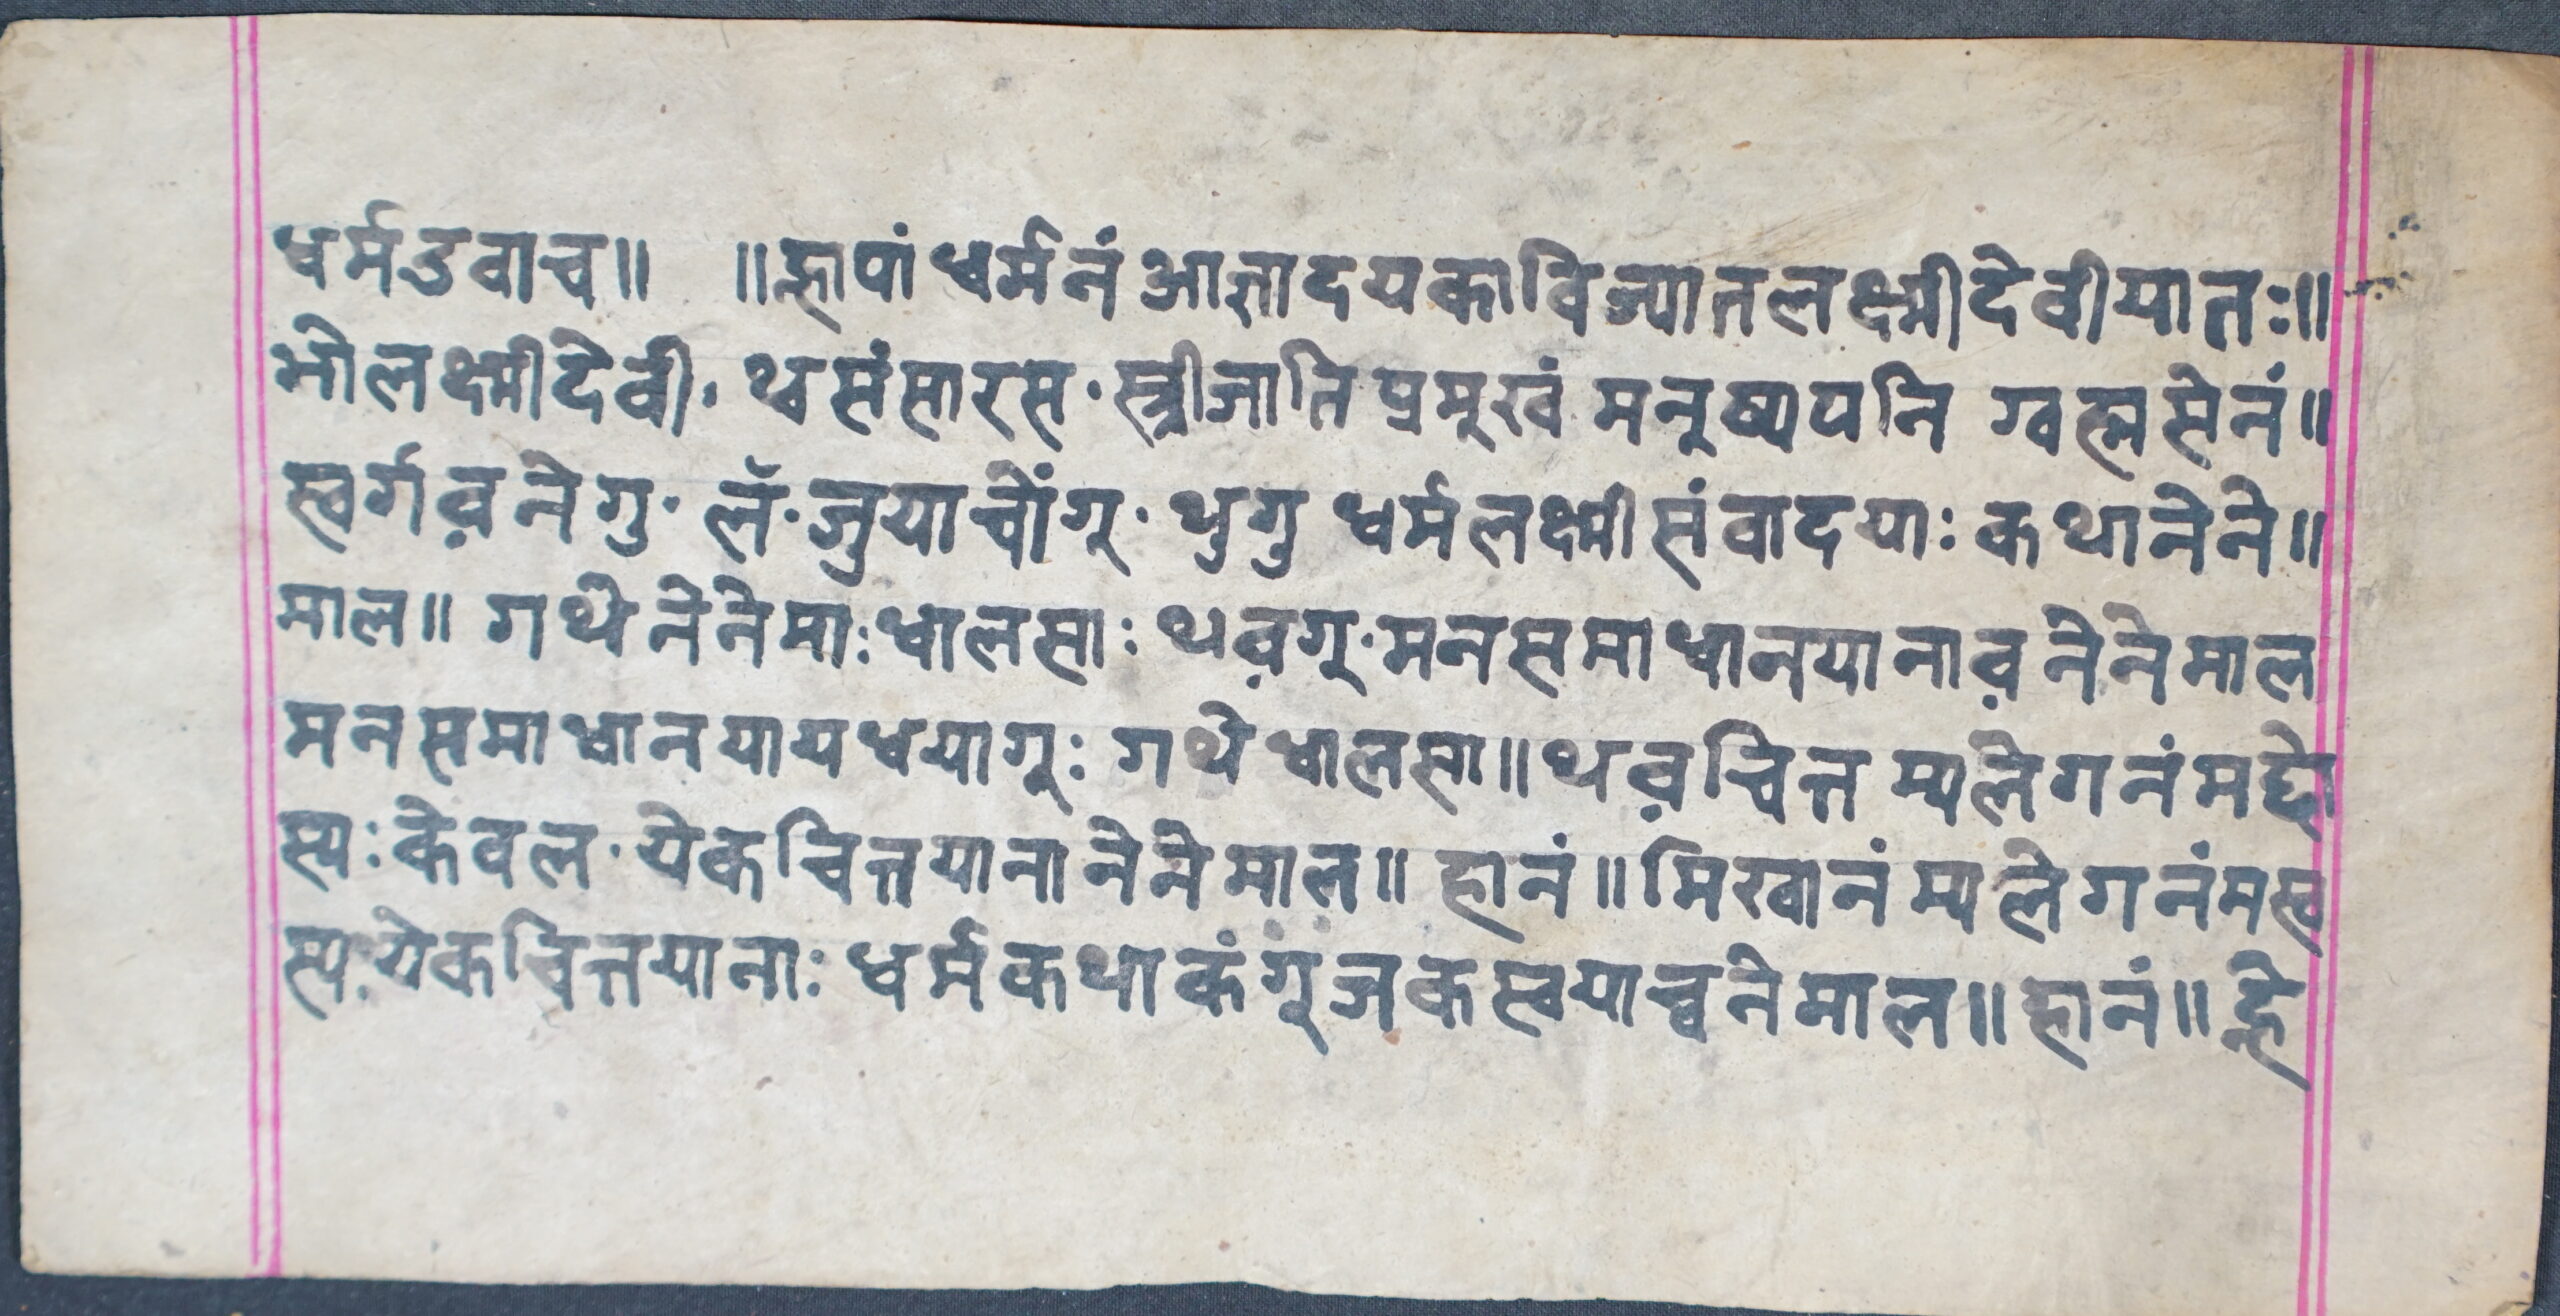 धर्मउवाच॥ ॥ह्नापां धर्मनं आज्ञादयकाविज्यातलक्ष्मीदेवीयातः॥
भोलक्ष्मीदेवी· थ्वसंसारस·स्त्रीजातिप्रमूखं मनूष्यपनि ग्वह्मसेनं॥
स्वर्गव़नेगु· लँ·जुयाचोंगू· थुगु धर्मलक्ष्मीसंवादयाः कथानेने॥
माल॥ गथेनेनेमाःधालसाः थव़गू·मनसमाधानयानाव़नेनेमाल
मनसमाधानयायधयागूः गथेधालसा॥थव़चित्त म्यलेगनंमछो
स्यः केवल·येकचित्तयानानेनेमाल॥ हानं॥मिखानंम्यलेगनंमस्व
स्यःयेकचित्तयानाः धर्मकथाकंगूजकस्वयाच्वनेमाल॥हानं॥ह्ने